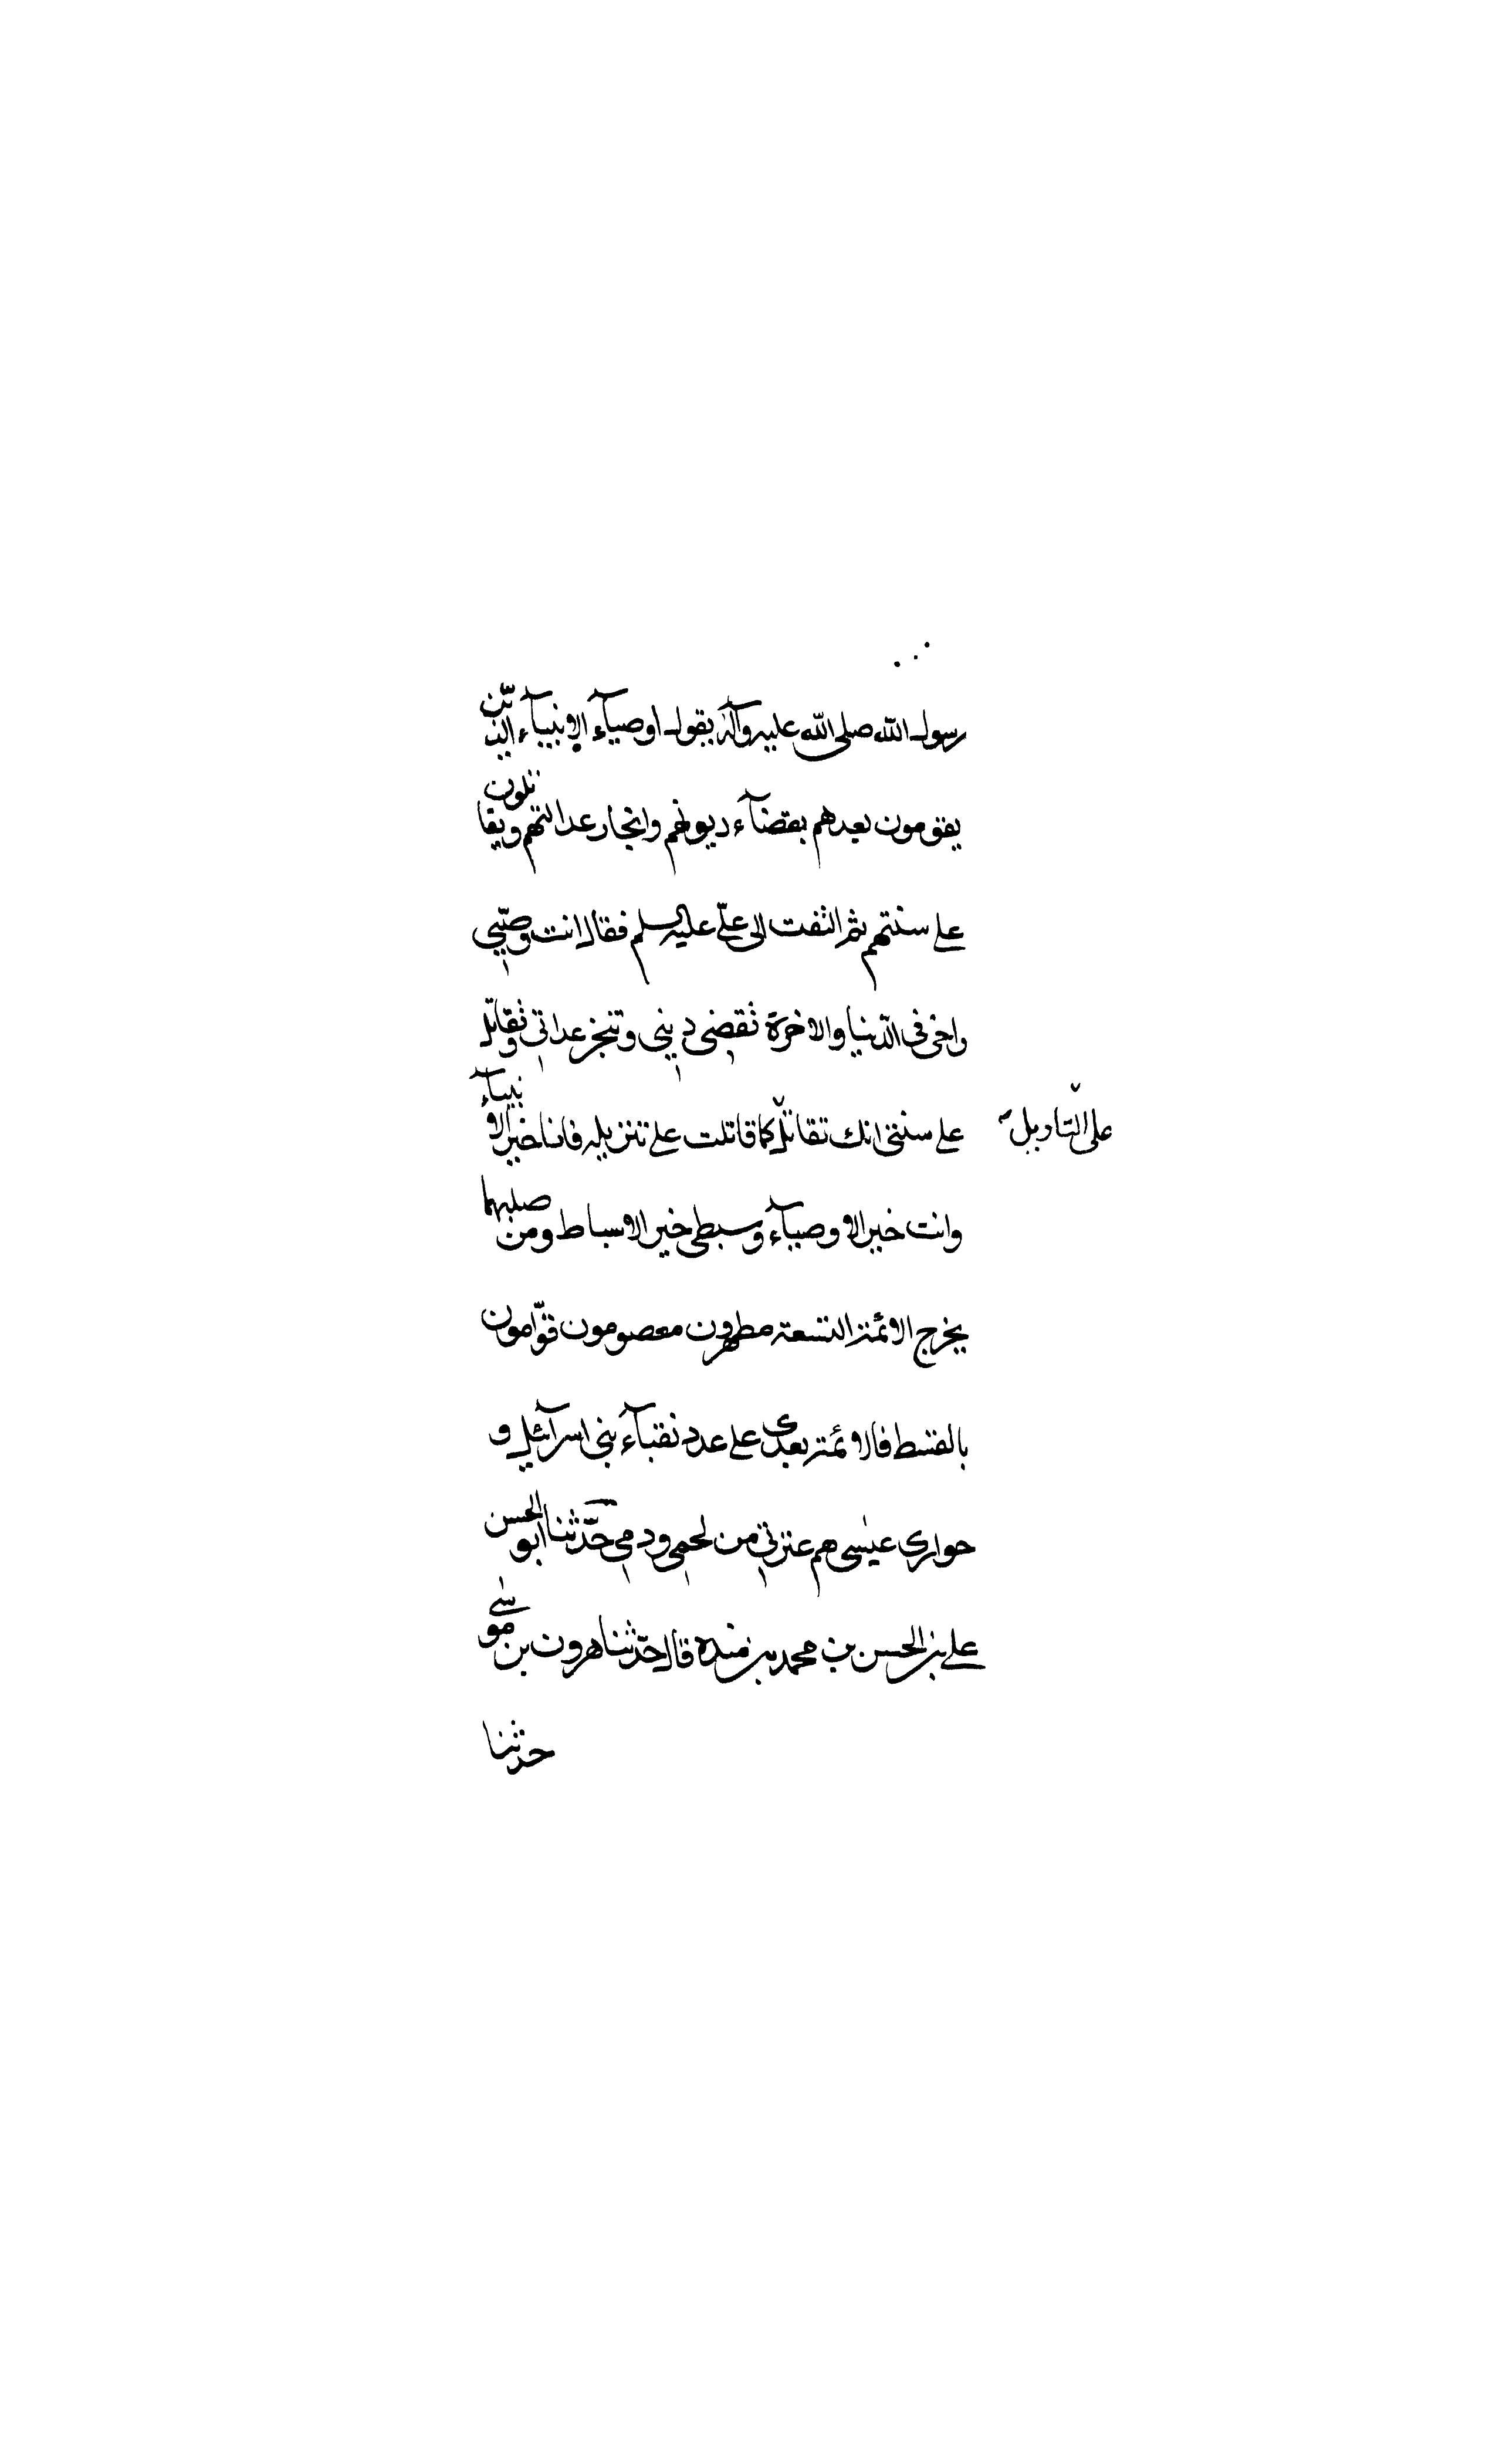 رسول الله صلى الله عليه وآله يقول اوصيآء الانبيآء الذين
يقومون بعدهم بقضآء ديونهم وانجاز عداتهم ويقاتلون
على سنتهم ثم التفت الى علىّ عليه السلم فقال انت وصيّي
واخى فى الدنيا والاخرة تقضى دينى وتنجز عداتى وتقاتل
على سنتى انك تقاتل كما قاتلت على تنزيله فانا خير الانبيآء
على التاويل
وانت خير الاوصيآء وسبطى خير الاسباط ومن صلبهما
يخرج الائمة التسعة مطهرون معصومون قوّامون
بالقسط فالائمة بعدى على عدد نقبآء بنى اسرآئيل و
حوارى عيسى هم عترتى من لحمى ودمى حدّثنا ابو الحسن
على بن الحسن بن محمد بن منده قال حدّثنا هرون بن موسى
حدثنا